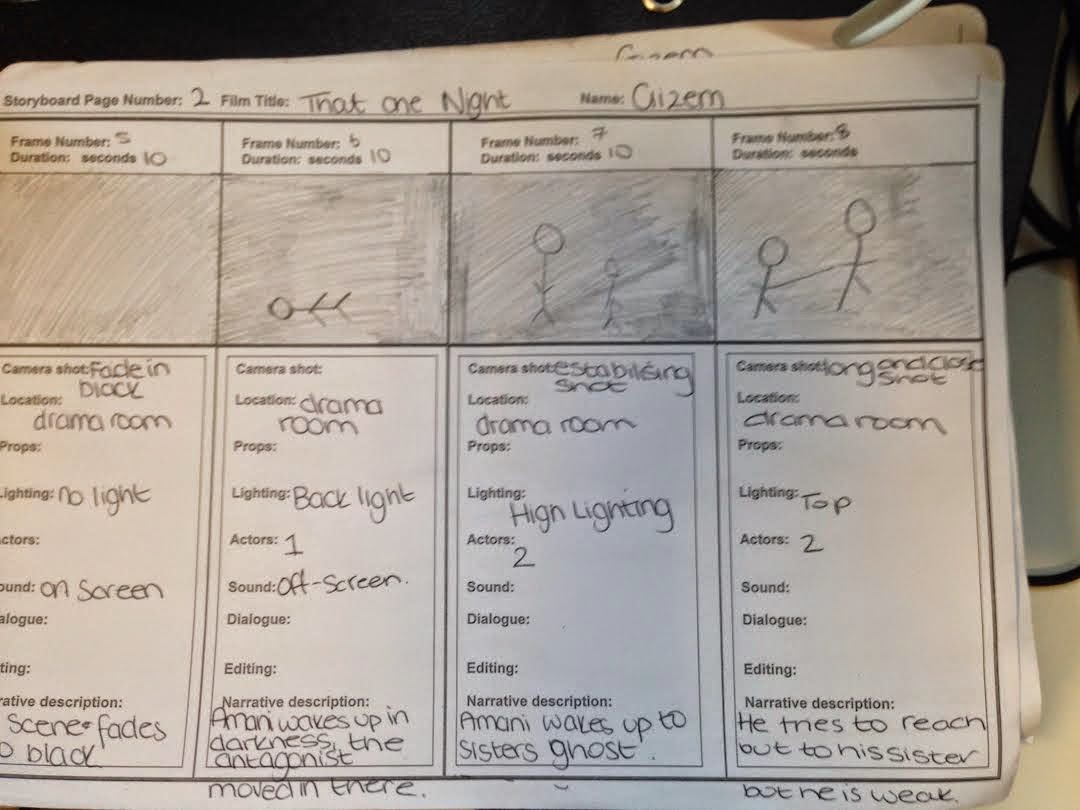 Gizem
Storyboard Page Number: 2 Film Title: That one Night Name: Gizem
Frame Number: 5
Duration: seconds 10
Camera shot: Fade in
black
Location:
drama room
Props:
Lighting: no light
ctors:
ound: on Screen
alogue:
ting:
rative description:
Scene fades
o black
Frame Number: 6
Duration: seconds 10
Camera shot:
Location: drama
room
Props:
Lighting: Back light
Actors: 1
Sound: Off-Screen.
Dialogue:
Editing:
Narrative description:
Amani wakes up in
darkness, the
antagonist
moved in there.
Frame Number: 7
Duration: seconds 10
Camera shot: establising
shot
Location:
drama room
Props:
Lighting:
High Lighting
Actors:
2
Sound:
Dialogue:
Editing:
Narrative description:
Amani wakes up to
sisters ghost.
Frame Number: 8
Duration: seconds
Camera shot: long and close
shot
Location:
drama room
Props:
Lighting: Top
Actors: 2
Sound:
Dialogue:
Editing:
Narrative description:
He tries to reach
but to his sister
but he is weak.